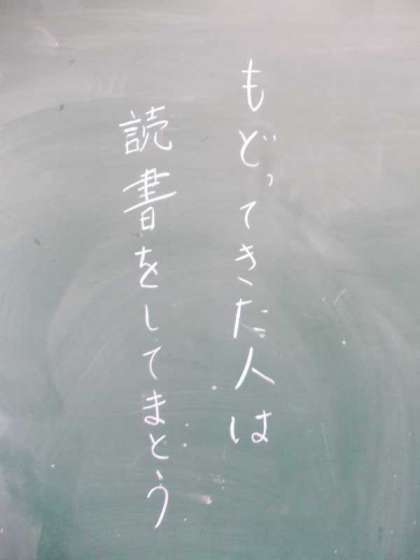 もどってきた人は
読書をしてまとう